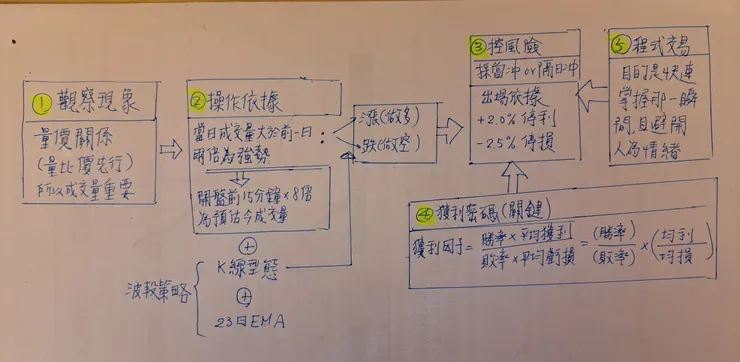 ① 觀察現象
量價關係
(量比價先行)
所以成交量重要
② 操作依據
當日成交量大於前一日
兩倍為強勢
開盤前15分鐘×8倍
為預估今成交量
K線型態
23日EMA
波段策略
漲(做多)
跌(做空)
③ 控風險
採當沖or隔日沖
出場依據
+2.0% 停利
-2.5% 停損
④ 獲利密碼(關鍵)
獲利因子=勝率×平均獲利/敗率×平均虧損=(勝率)/(敗率)×(均利/均損)
⑤ 程式交易
目的是快速
掌握那一瞬
間,且避開
人為情緒